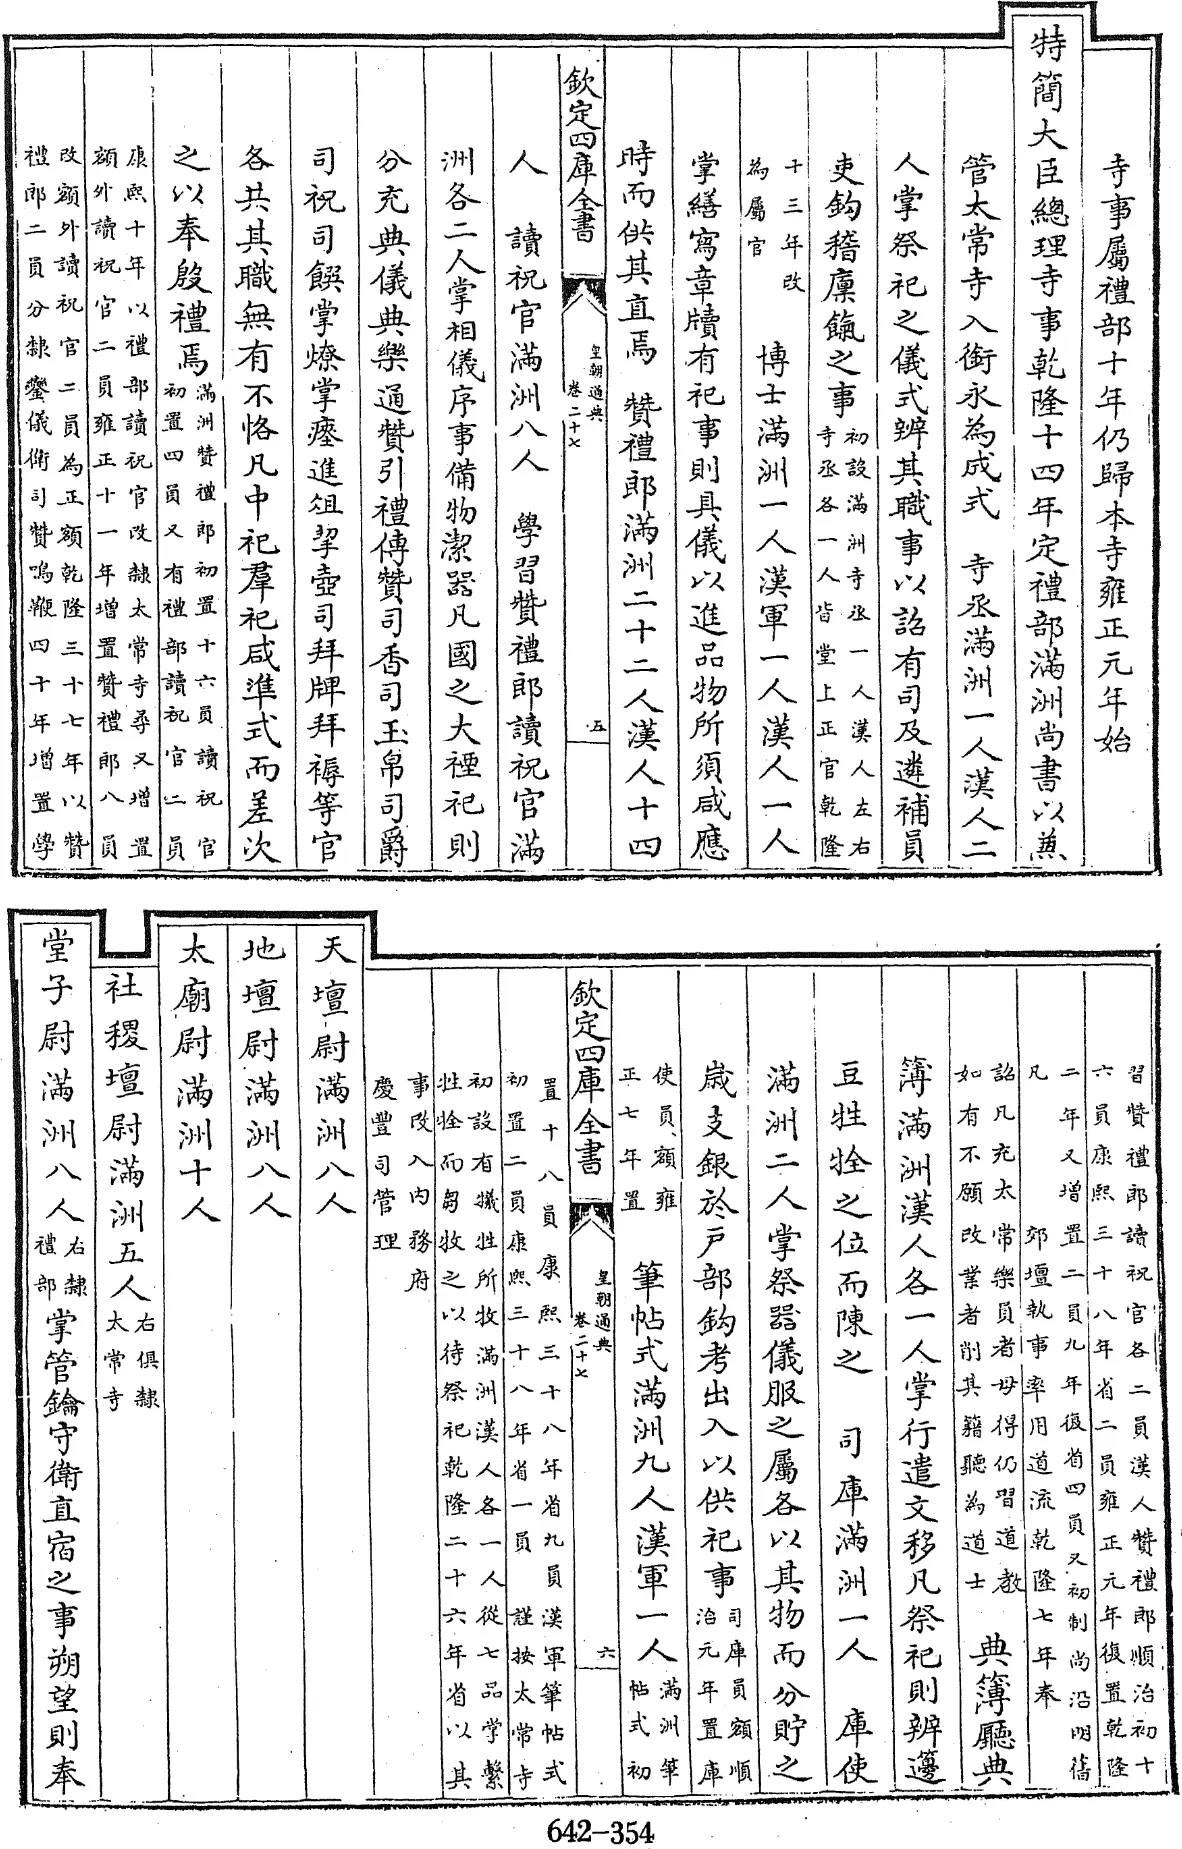 寺事屬禮部十年仍歸本寺雍正元年始
特簡大臣總理寺事乾隆十四年定禮部滿洲尚書以兼
管太常寺入銜永為成式 寺丞滿洲一人漢人二
人掌祭祀之儀式辨其職事以詔有司及遴補員
吏鈎稽廩餼之事初設滿洲寺丞一人漢人左右
寺丞各一人皆堂上正官乾隆
十三年改
為屬官 博士滿洲一人漢軍一人漢人一人
掌繕寫章牘有祀事則具儀以進品物所須咸應
時而供其直焉 贊禮郎滿洲二十二人漢人十四
欽定四庫全書
皇朝通典
卷二十七
五
人 讀祝官滿洲八人 學習贊禮郎讀祝官滿
洲各二人掌相儀序事備物潔器凡國之大禋祀則
分充典儀典樂通贊引禮傳贊司香司玉帛司爵
司祝司饌掌燎掌瘞進俎挈壺司拜牌拜褥等官
各共其職無有不恪凡中祀羣祀咸準式而差次
之以奉殷禮焉滿洲贊禮郎初置十六員讀祝官
初置四員又有禮部讀祝官二員
康熙十年以禮部讀祝官改隸太常寺尋又增置
額外讀祝官二員雍正十一年增置贊禮郎八員
改額外讀祝官二員為正額乾隆三十七年以贊
禮郎二員分隸鑾儀衛司贊鳴鞭四十年增置學
習贊禮郎讀祝官各二員漢人贊禮郎順治初十
六員康熙三十八年省二員雍正元年復置乾隆
二年又增置二員九年復省四員又初制尚沿明舊
凡 郊壇執事率用道流乾隆七年奉
詔凡充太常樂員者毋得仍習道教
如有不願改業者削其籍聽為道士 典簿廳典
簿滿洲漢人各一人掌行遣文移凡祭祀則辨籩
豆牲牷之位而陳之 司庫滿洲一人 庫使
滿洲二人掌祭器儀服之屬各以其物而分貯之
歲支銀於戶部鈎考出入以供祀事司庫員額順
治元年置庫
使員額雍
正七年置 筆帖式滿洲九人漢軍一人滿洲筆
帖式初
欽定四庫全書
皇朝通典
卷二十七
六
置十八員康熙三十八年省九員漢軍筆帖式
初置二員康熙三十八年省一員 謹按太常寺
初設有犧牲所牧滿洲漢人各一人從七品掌繫
牲牷而芻牧之以待祭祀乾隆二十六年省以其
事改入內務府
慶豐司管理
天壇尉滿洲八人
地壇尉滿洲八人
太廟尉滿洲十人
社稷壇尉滿洲五人右俱隸
太常寺
堂子尉滿洲八人右隸
禮部掌管鑰守衛直宿之事朔望則奉
642-354